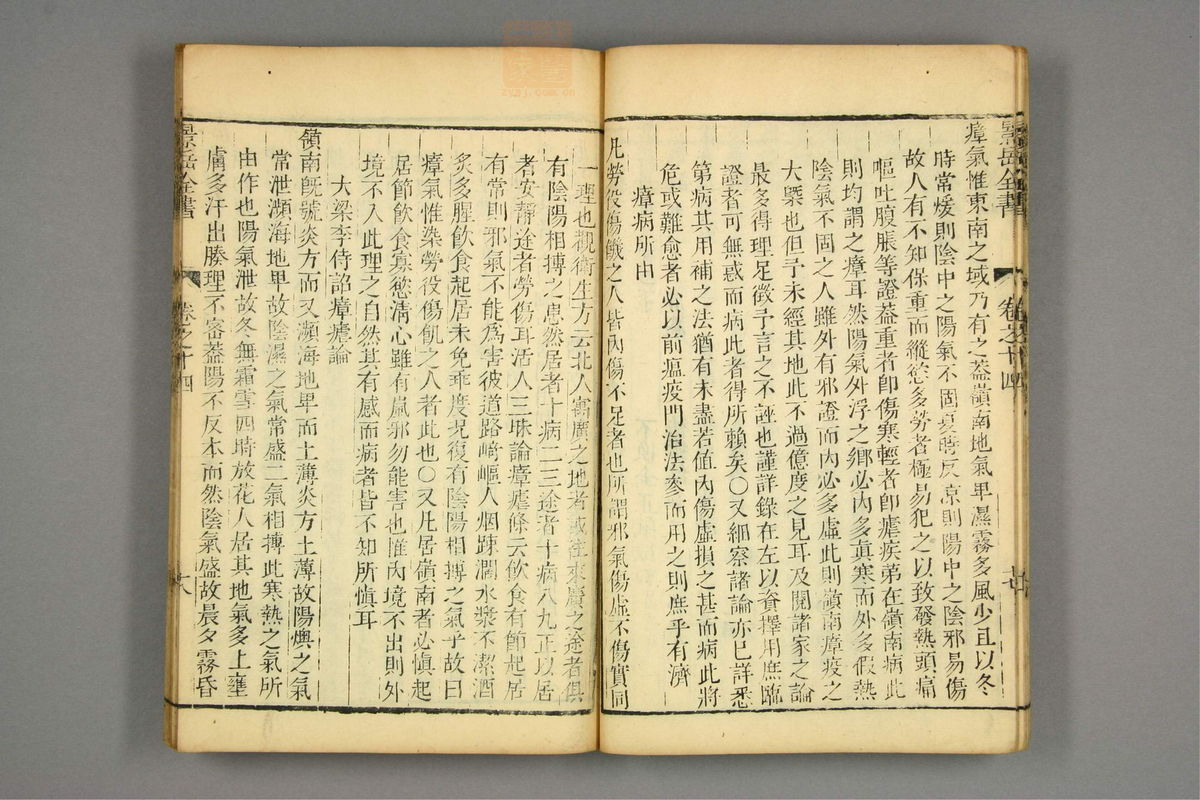 瘴氣惟東南之域乃有之蓋嶺南地氣卑濕霧多風少且以冬
時常煖則陰中之陽氣不固夏時反涼則陽中之陰邪易傷
故人有不知保重而縱慾多勞者極易犯之以致發熱頭痛
嘔吐腹脹等證蓋重者卽傷寒輕者卽瘧疾第在嶺南病此
則均謂之瘴耳然陽氣外浮之鄉必內多眞寒而外多假熱
陰氣不固之人雖外有邪證而內必多虛此則嶺南瘴疫之
大槩也但予未經其地此不過億度之見耳及閱諸家之論
最多得理足徵予言之不誣也謹詳錄在左以資擇用庶臨
證者可無惑而病此者得所賴矣○又細察諸論亦已詳悉
第病其用補之法猶有未盡若值內傷虛損之甚而病此將
危或難愈者必以前瘟疫門治法參而用之則庶乎有濟
瘴病所由
凡勞役傷饑之人皆內傷不足者也所謂邪氣傷虛不傷實同
景岳全書
卷之十四
一理也觀衛生方云北人寓廣之地者或往來廣之途者俱
有陰陽相搏之患然居者十病二三途者十病八九正以居
者安靜途者勞傷耳活人三昧論瘴瘧條云飲食有節起居
有常則邪氣不能爲害彼道路崎嶇人烟踈濶水漿不潔酒
炙多腥飲食起居未免乖度况復有陰陽相搏之氣乎故曰
瘴氣惟染勞役傷飢之人者此也○又凡居嶺南者必慎起
居節飲食寡慾清心雖有嵐邪勿能害也惟內境不出則外
境不入此理之自然其有感而病者皆不知所慎耳
大梁李侍詔瘴瘧論
嶺南旣號炎方而又瀕海地卑而土薄炎方土薄故陽燠之氣
常泄瀕海地卑故陰濕之氣常盛二氣相搏此寒熱之氣所
由作也陽氣泄故冬無霜雪四時放花人居其地氣多上壅
膚多汗出腠理不密蓋陽不反本而然陰氣盛故晨夕霧昏
景岳全書
卷之十四
zysj.com.cn